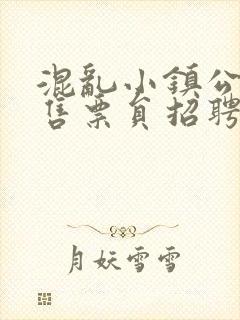 混亂小鎮公
售票員招聘
月妖雪雪